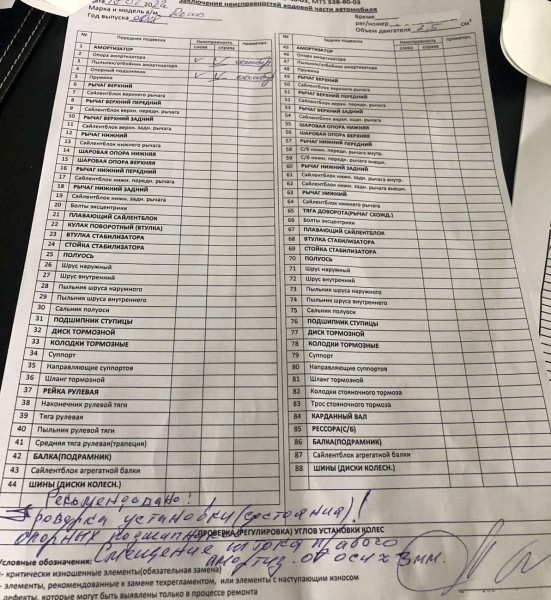 Заключение неисправностей ходовой части автомобиля
МТS 538-80-03
Дата
Марка и модель а/м
Год выпуска
Время
рег/номер
Объем двигателя 2,5 см³
№ Передняя подвеска Неисправность примечан.
слева справа
1 АМОРТИЗАТОР
2 Опора амортизатора
3 Пыльник/отбойник амортизатора
4 Опорный подшипник
5 Пружина
6 РЫЧАГ ВЕРХНИЙ
7 Сайлентблок верхнего рычага
8 РЫЧАГ ВЕРХНИЙ ПЕРЕДНИЙ
9 Сайлентблок верхн. передн. рычага
10 РЫЧАГ ВЕРХНИЙ ЗАДНИЙ
11 Сайлентблок верхн. задн. рычага
12 РЫЧАГ НИЖНИЙ
13 Сайлентблок нижнего рычага
14 ШАРОВАЯ ОПОРА НИЖНЯЯ
15 ШАРОВАЯ ОПОРА ВЕРХНЯЯ
16 РЫЧАГ НИЖНИЙ ПЕРЕДНИЙ
17 Сайлентблок нижн. передн. рычага
18 РЫЧАГ НИЖНИЙ ЗАДНИЙ
19 Сайлентблок нижн. задн. рычага
20 Болты эксцентрики
21 ПЛАВАЮЩИЙ САЙЛЕНТБЛОК
22 КУЛАК ПОВОРОТНЫЙ (ВТУЛКА)
23 ВТУЛКА СТАБИЛИЗАТОРА
24 СТОЙКА СТАБИЛИЗАТОРА
25 ПОЛУОСЬ
26 Шрус наружный
27 Шрус внутренний
28 Пыльник шруса наружного
29 Пыльник шруса внутреннего
30 Сальник полуоси
31 ПОДШИПНИК СТУПИЦЫ
32 ДИСК ТОРМОЗНОЙ
33 КОЛОДКИ ТОРМОЗНЫЕ
34 Суппорт
35 Направляющие суппортов
36 Шланг тормозной
37 РЕЙКА РУЛЕВАЯ
38 Наконечник рулевой тяги
39 Тяга рулевая
40 Пыльник рулевой тяги
41 Средняя тяга рулевая(трапеция)
42 БАЛКА(ПОДРАМНИК)
43 Сайлентблок агрегатной балки
44 ШИНЫ (ДИСКИ КОЛЕСН.)
№ Задняя подвеска Неисправность примечан.
слева справа
45 АМОРТИЗАТОР
46 Опора амортизатора
47 Пыльник/отбойник амортизатора
48 Пружина
49 РЫЧАГ ВЕРХНИЙ
50 Сайлентблок верхнего рычага
51 РЫЧАГ ВЕРХНИЙ ПЕРЕДНИЙ
52 Сайлентблок верхн. передн. рычага
53 РЫЧАГ ВЕРХНИЙ ЗАДНИЙ
54 Сайлентблок верхн. задн. рычага
55 ШАРОВАЯ ОПОРА НИЖНЯЯ
56 ШАРОВАЯ ОПОРА ВЕРХНЯЯ
57 РЫЧАГ НИЖНИЙ ПЕРЕДНИЙ
58 С/б нижн. передн. рычага внутр.
59 С/б нижн. передн. рычага внешн.
60 РЫЧАГ НИЖНИЙ ЗАДНИЙ
61 Сайлентблок нижн. задн. рычага внутр.
62 Сайлентблок нижн. задн. рычага внешн.
63 РЫЧАГ НИЖНИЙ
64 Сайлентблок нижнего рычага
65 ТЯГА ДОВОРОТА(РЫЧАГ СХОЖД.)
66 Болты эксцентрики
67 ПЛАВАЮЩИЙ САЙЛЕНТБЛОК
68 ВТУЛКА СТАБИЛИЗАТОРА
69 СТОЙКА СТАБИЛИЗАТОРА
70 ПОЛУОСЬ
71 Шрус наружный
72 Шрус внутренний
73 Пыльник шруса наружного
74 Пыльник шруса внутреннего
75 Сальник полуоси
76 ПОДШИПНИК СТУПИЦЫ
77 ДИСК ТОРМОЗНОЙ
78 КОЛОДКИ ТОРМОЗНЫЕ
79 Суппорт
80 Направляющие суппортов
81 Шланг тормозной
82 Колодки стояночного тормоза
83 Трос стояночного тормоза
84 КАРДАННЫЙ ВАЛ
85 РЕССОРА(С/Б)
86 БАЛКА(ПОДРАМНИК)
87 Сайлентблок агрегатной балки
88 ШИНЫ (ДИСКИ КОЛЕСН.)
Рекомендовано!
Проверка установки(состояния)!
опорных подшипн
ПРОВЕРКА (РЕГУЛИРОВКА) УГЛОВ УСТАНОВКИ КОЛЕС
Смещение штока правого
амортиз. от оси ≈ 3 мм.
Условные обозначения:
- критически изношенные элементы(обязательная замена)
- элементы, рекомендованные к замене техрегламентом, или элементы с наступающим износом
дефекты, которые могут быть выявлены только в процессе ремонта